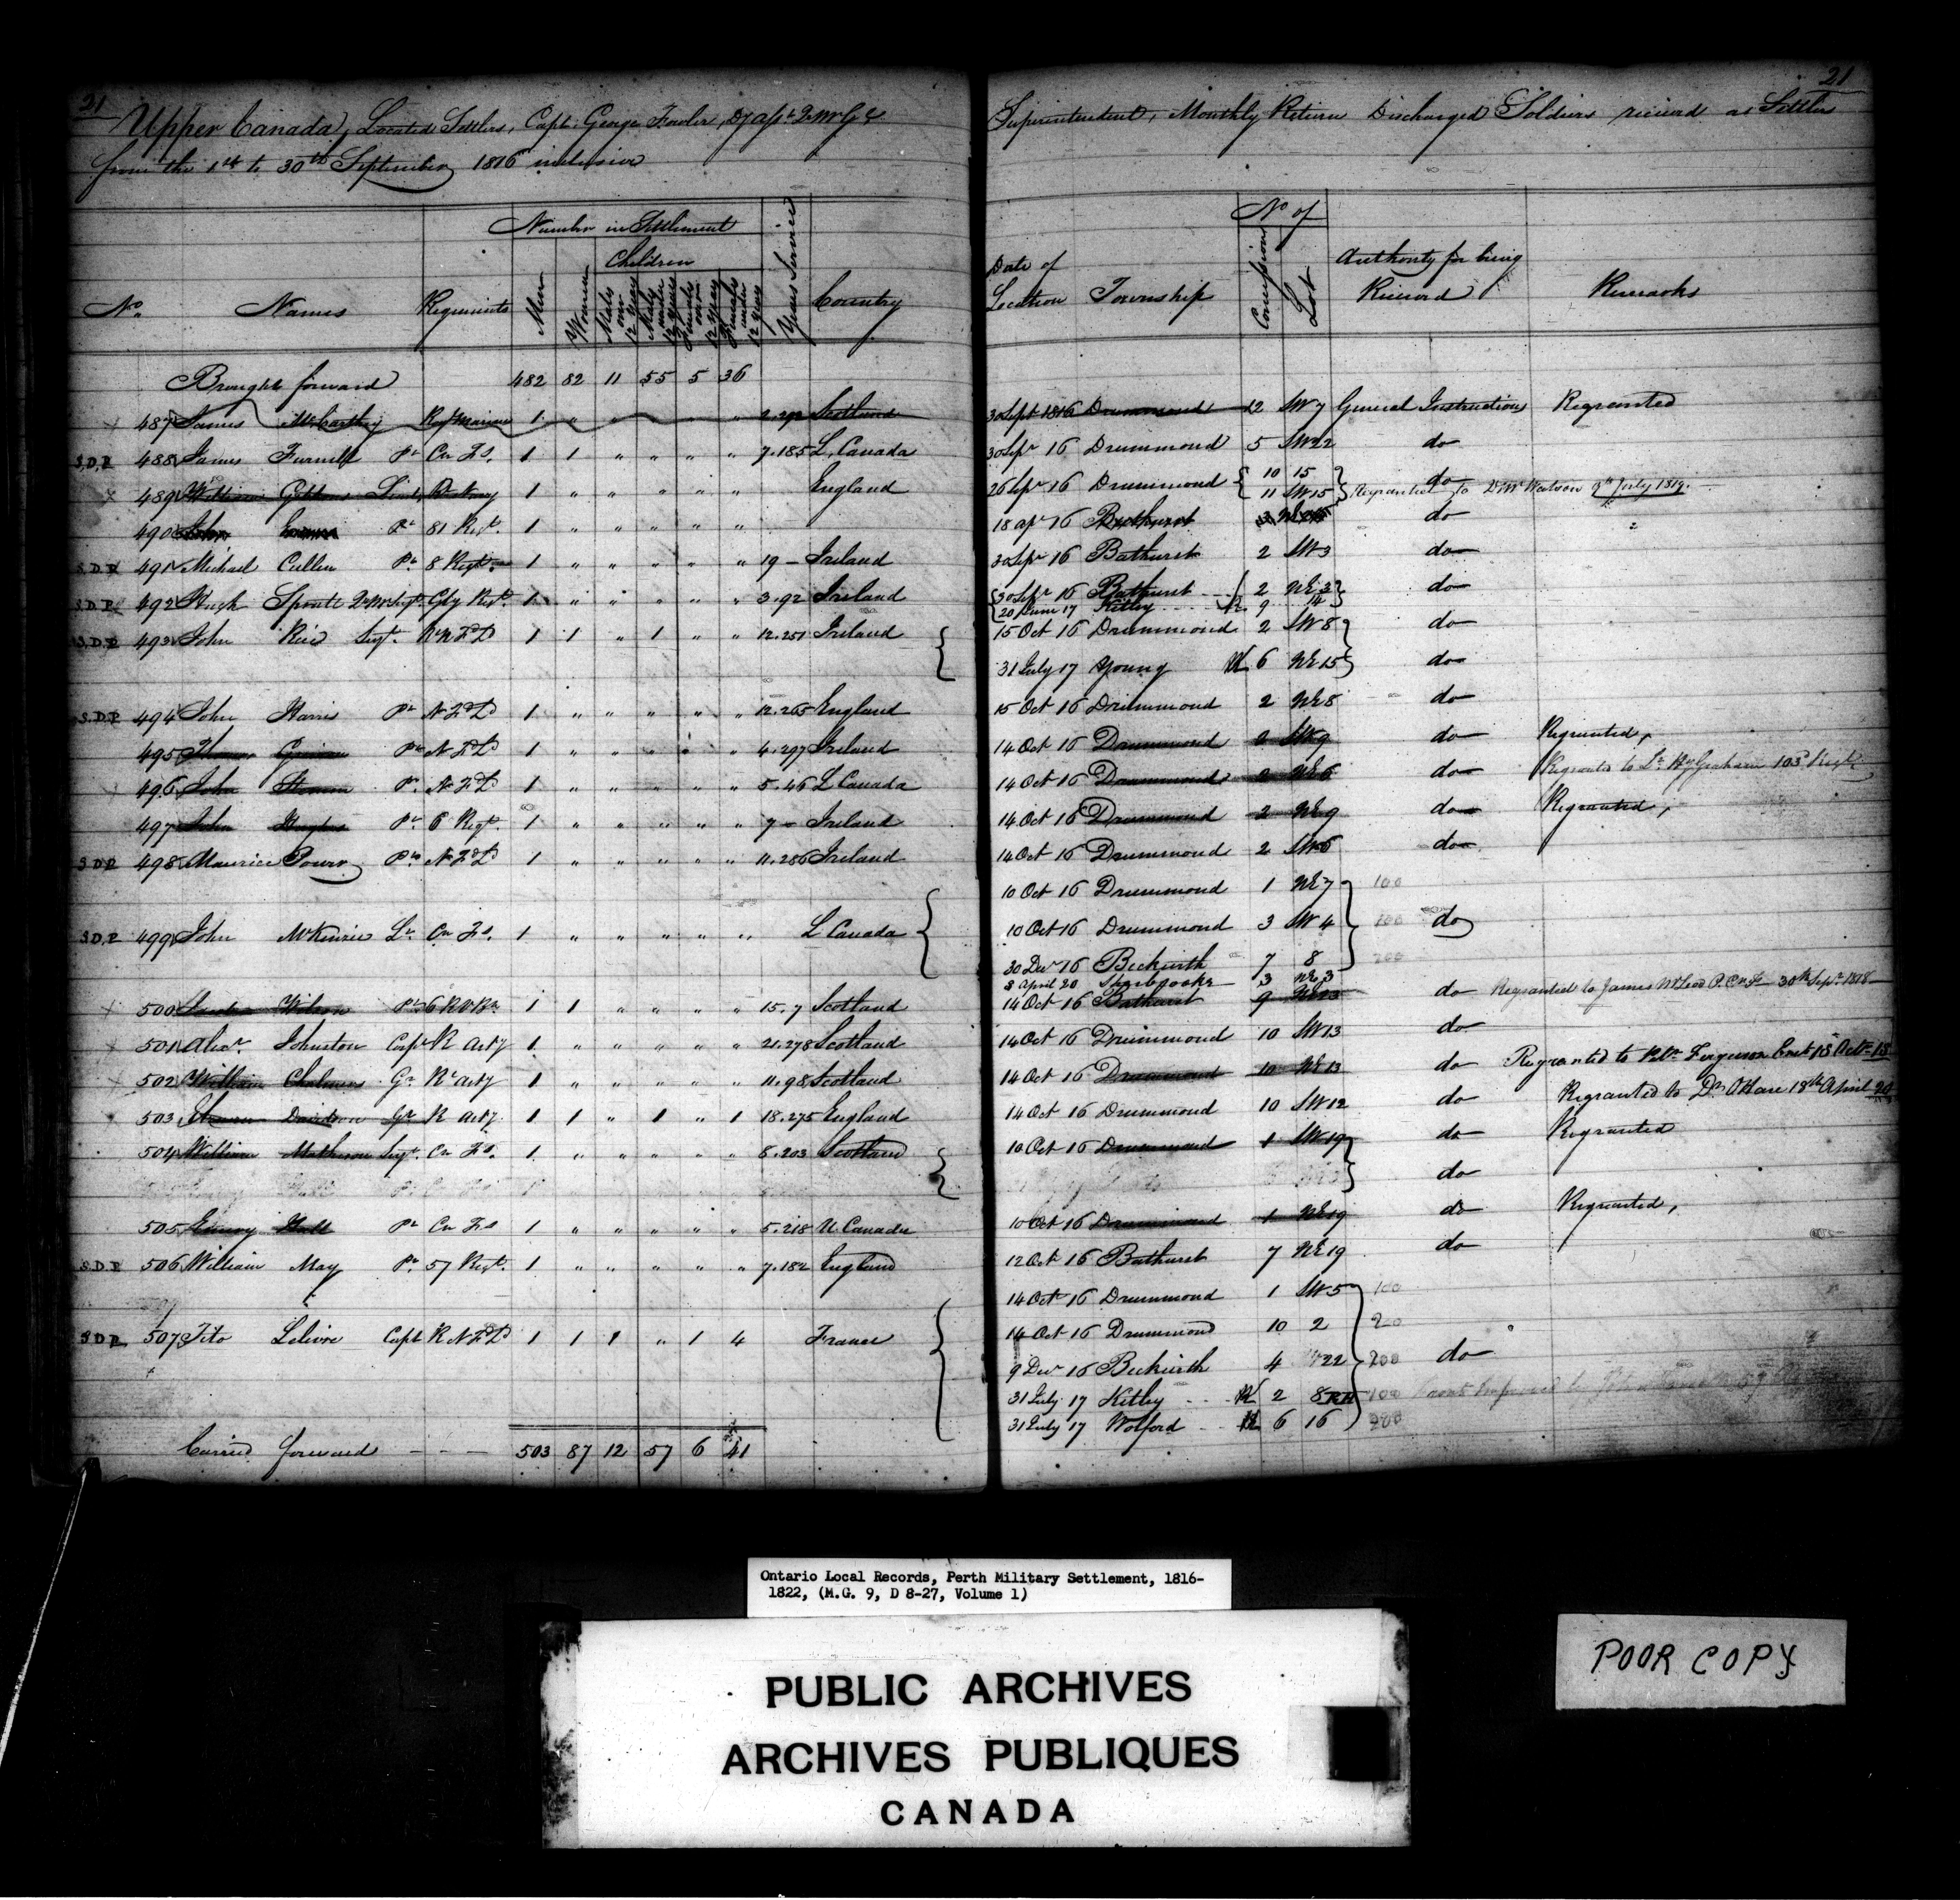 21
Upper Canada, Located Settlers, Capt. George Fowler, Dy asst. Q M G &
from the 1st to 30th September 1816 inclusive
No. Names Regiments Number in Settlement Years Service Country
Men Women Children
Males over 12 years Males under 12 years Females over 12 years Females under 12 years
Brought forward 482 82 11 55 5 36
487 James McCarthy Rl Marine 1 " " " " " 2.292 Scotland
S.D.P 488 James Pt Cn Fs. 1 1 " " " " 7.185 L. Canada
489 William Lieut 1 " " " " " England
490 John Pt 81 Regt. 1 " " " " "
S.D.P 491 Michael Cullen Pt 8 Regt. 1 " " " " " 19 – Ireland
S.D.P 492 Hugh Sproule Gly Regt. 1 " " " " " 3.92 Ireland
S.D.P 493 John Sergt. R N F Ld 1 1 " 1 " " 12.251 Ireland
S.D.P 494 John Harris Pt N F Ld 1 " " " " " 12.265 England
495 Pt N F Ld 1 " " " " " 4.297 Ireland
496 John Pt N F Ld 1 " " " " " 5.46 L Canada
497 John Hughes Pt 6 Regt. 1 " " " " " 7 – Ireland
S.D.P 498 Maurice Power Pt N F Ld 1 " " " " " 11.286 Ireland
S.D.P 499 John McKenzie Lt Cn Fs. 1 " " " " " L Canada
500 Wilson Pt 6 1 1 " " " " 15.7 Scotland
501 Alexr. Johnston Corpl R Arty 1 " " " " " 21.278 Scotland
502 William Chalmers Gr Rl Arty 1 " " " " " 11.98 Scotland
503 Davidson Gr R Arty. 1 1 " 1 " 1 18.275 England
504 William Matheson Sergt. Cn Fs. 1 " " " " " 8.203 Scotland
505 Hall Pt Cn Fs 1 " " " " " 5.218 U. Canada
S.D.P 506 William May Pt 57 Regt. 1 " " " " " 7.182 England
S.D.P 507 Tito Lelievre Capt R N F Ld 1 1 1 " 1 4 France
Carried forward – – – 503 87 12 57 6 41
21
Superintendent, Monthly Return Discharged Soldiers received as Settlers
Date of Location Township No of Concession Lot Authority for being Received Remarks
30 Sept 1816 Drummond 12 SW 7 General Instructions Regranted
30 Sepr 16 Drummond 5 SW 22 do
26 Sepr 16 Drummond 10 15 do
11 SW 15 Regranted to Watson 9th July 1819.
18 apl 16 Bathurst do
30 Sepr 16 Bathurst 2 SW 3 do
30 Sepr 16 Bathurst 2 NE 3 do
20 June 17 Kitley 9 14
15 Oct 16 Drummond 2 SW 8 do
31 July 17 Young 6 NE 15 do
15 Oct 16 Drummond 2 NE 8 do
14 Oct 16 Drummond 2 SW 9 do Regranted,
14 Oct 16 Drummond 2 NE 6 do Regranted to Lt. Graham 103d Regt
14 Oct 16 Drummond 2 NE 9 do Regranted,
14 Oct 16 Drummond 2 SW 6 do
10 Oct 16 Drummond 1 NE 7 100
10 Oct 16 Drummond 3 SW 4 100 do
30 Decr 16 Beckwith 7 8 200
8 April 20 Sherbrooke 3 NE 3
14 Oct 16 Bathurst 9 NE 13 do Regranted to James McLeod P. C n F 30th Sept. 1818
14 Oct 16 Drummond 10 SW 13 do
14 Oct 16 Drummond 10 NE 13 do Regranted to Ferguson 15 Octr 18
14 Oct 16 Drummond 10 SW 12 do Regranted to Dr. OHare 18th April 20
10 Oct 16 Drummond 1 SW 19 do Regranted
do
10 Oct 16 Drummond 1 NE 19 do Regranted,
12 Oct 16 Bathurst 7 NE 19 do
14 Oct 16 Drummond 1 SW 5 100
14 Oct 16 Drummond 10 2
9 Decr 16 Beckwith 4 22 200 do
31 July 17 Kitley 2 8 100
31 July 17 Wolford 6 16 200
Ontario Local Records, Perth Military Settlement, 1816-
1822, (M.G. 9, D 8-27, Volume 1)
PUBLIC ARCHIVES
ARCHIVES PUBLIQUES
CANADA
POOR COPY